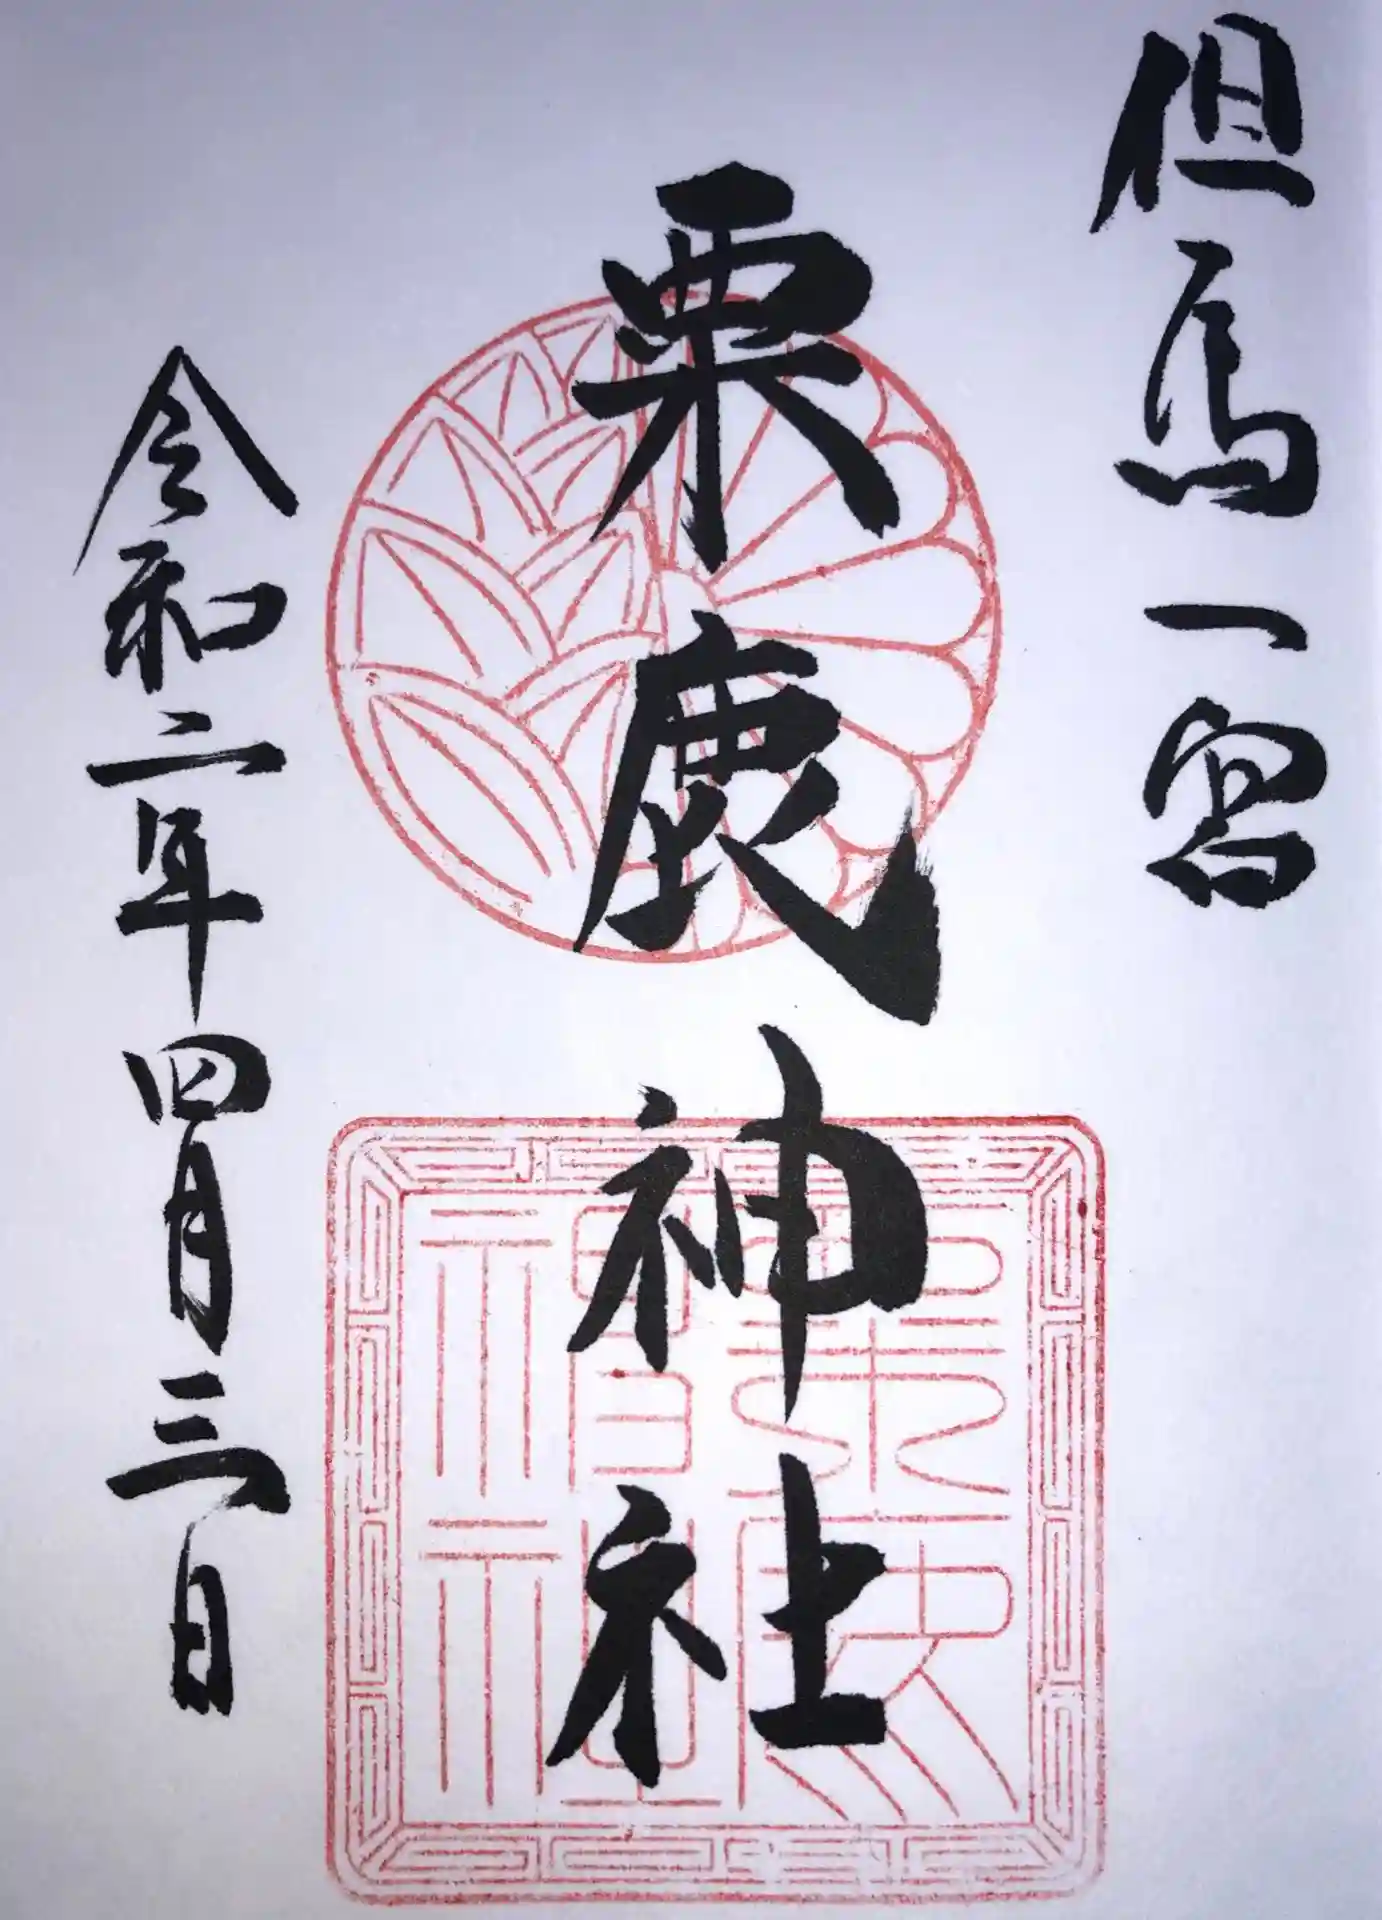 但馬一宮
粟鹿神社
令和二年四月三日